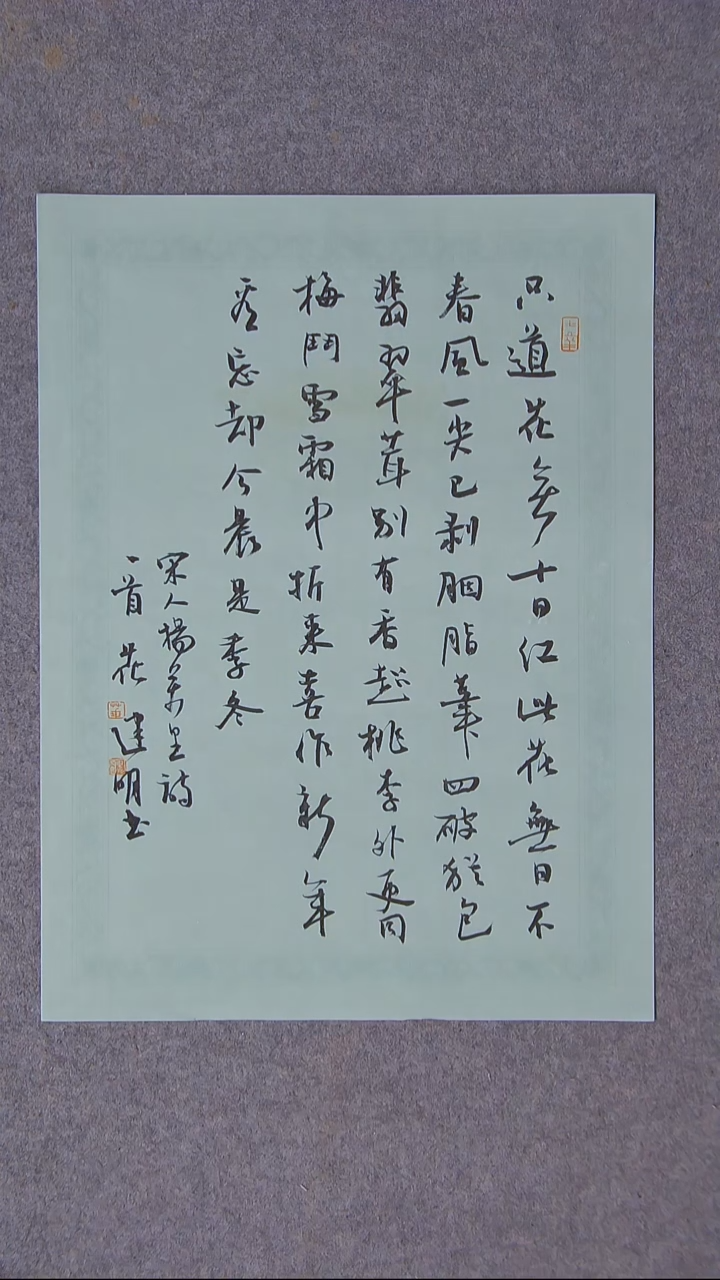 只道花無十日红此花無日不
春風一尖已剥胭脂筆四破猶包
翡翠茸别有香超桃李外更同
梅鬥雪霜中折來喜作新年
看忘却今晨是季冬
宋人楊萬里詩
一首 花建明书